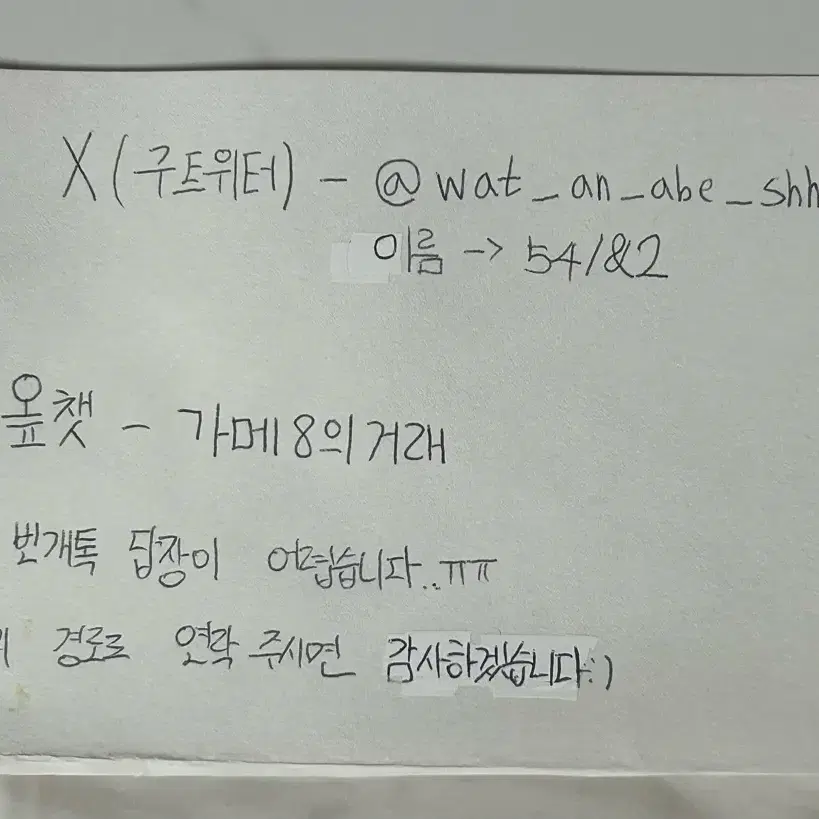 X (구트위터) - @wat_an_abe_shh
이름 -> 54/&2
옾챗 - 가메8의 거래
번개톡 답장이 어렵습니다..ㅠㅠ
경로로 연락 주시면 감사하겠습니다:)